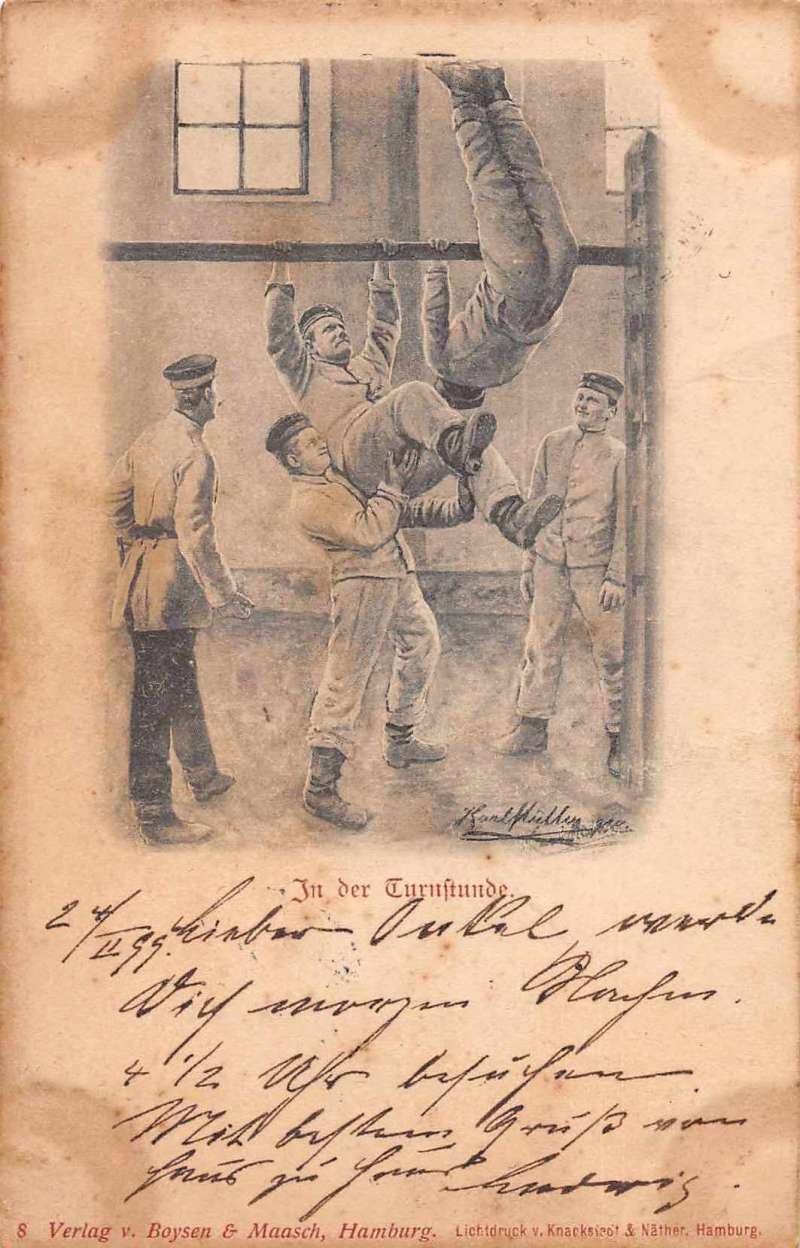 Karl Müller
In der Turnstunde.
24/II 99. Lieber Onkel, werde
Dich morgen Nachm.
4 1/2 Uhr besuchen
Mit bestem Gruß von
Haus zu Haus Ludwig.
8 Verlag v. Boysen & Maasch, Hamburg. Lichtdruck v. Knackstedt & Näther, Hamburg.